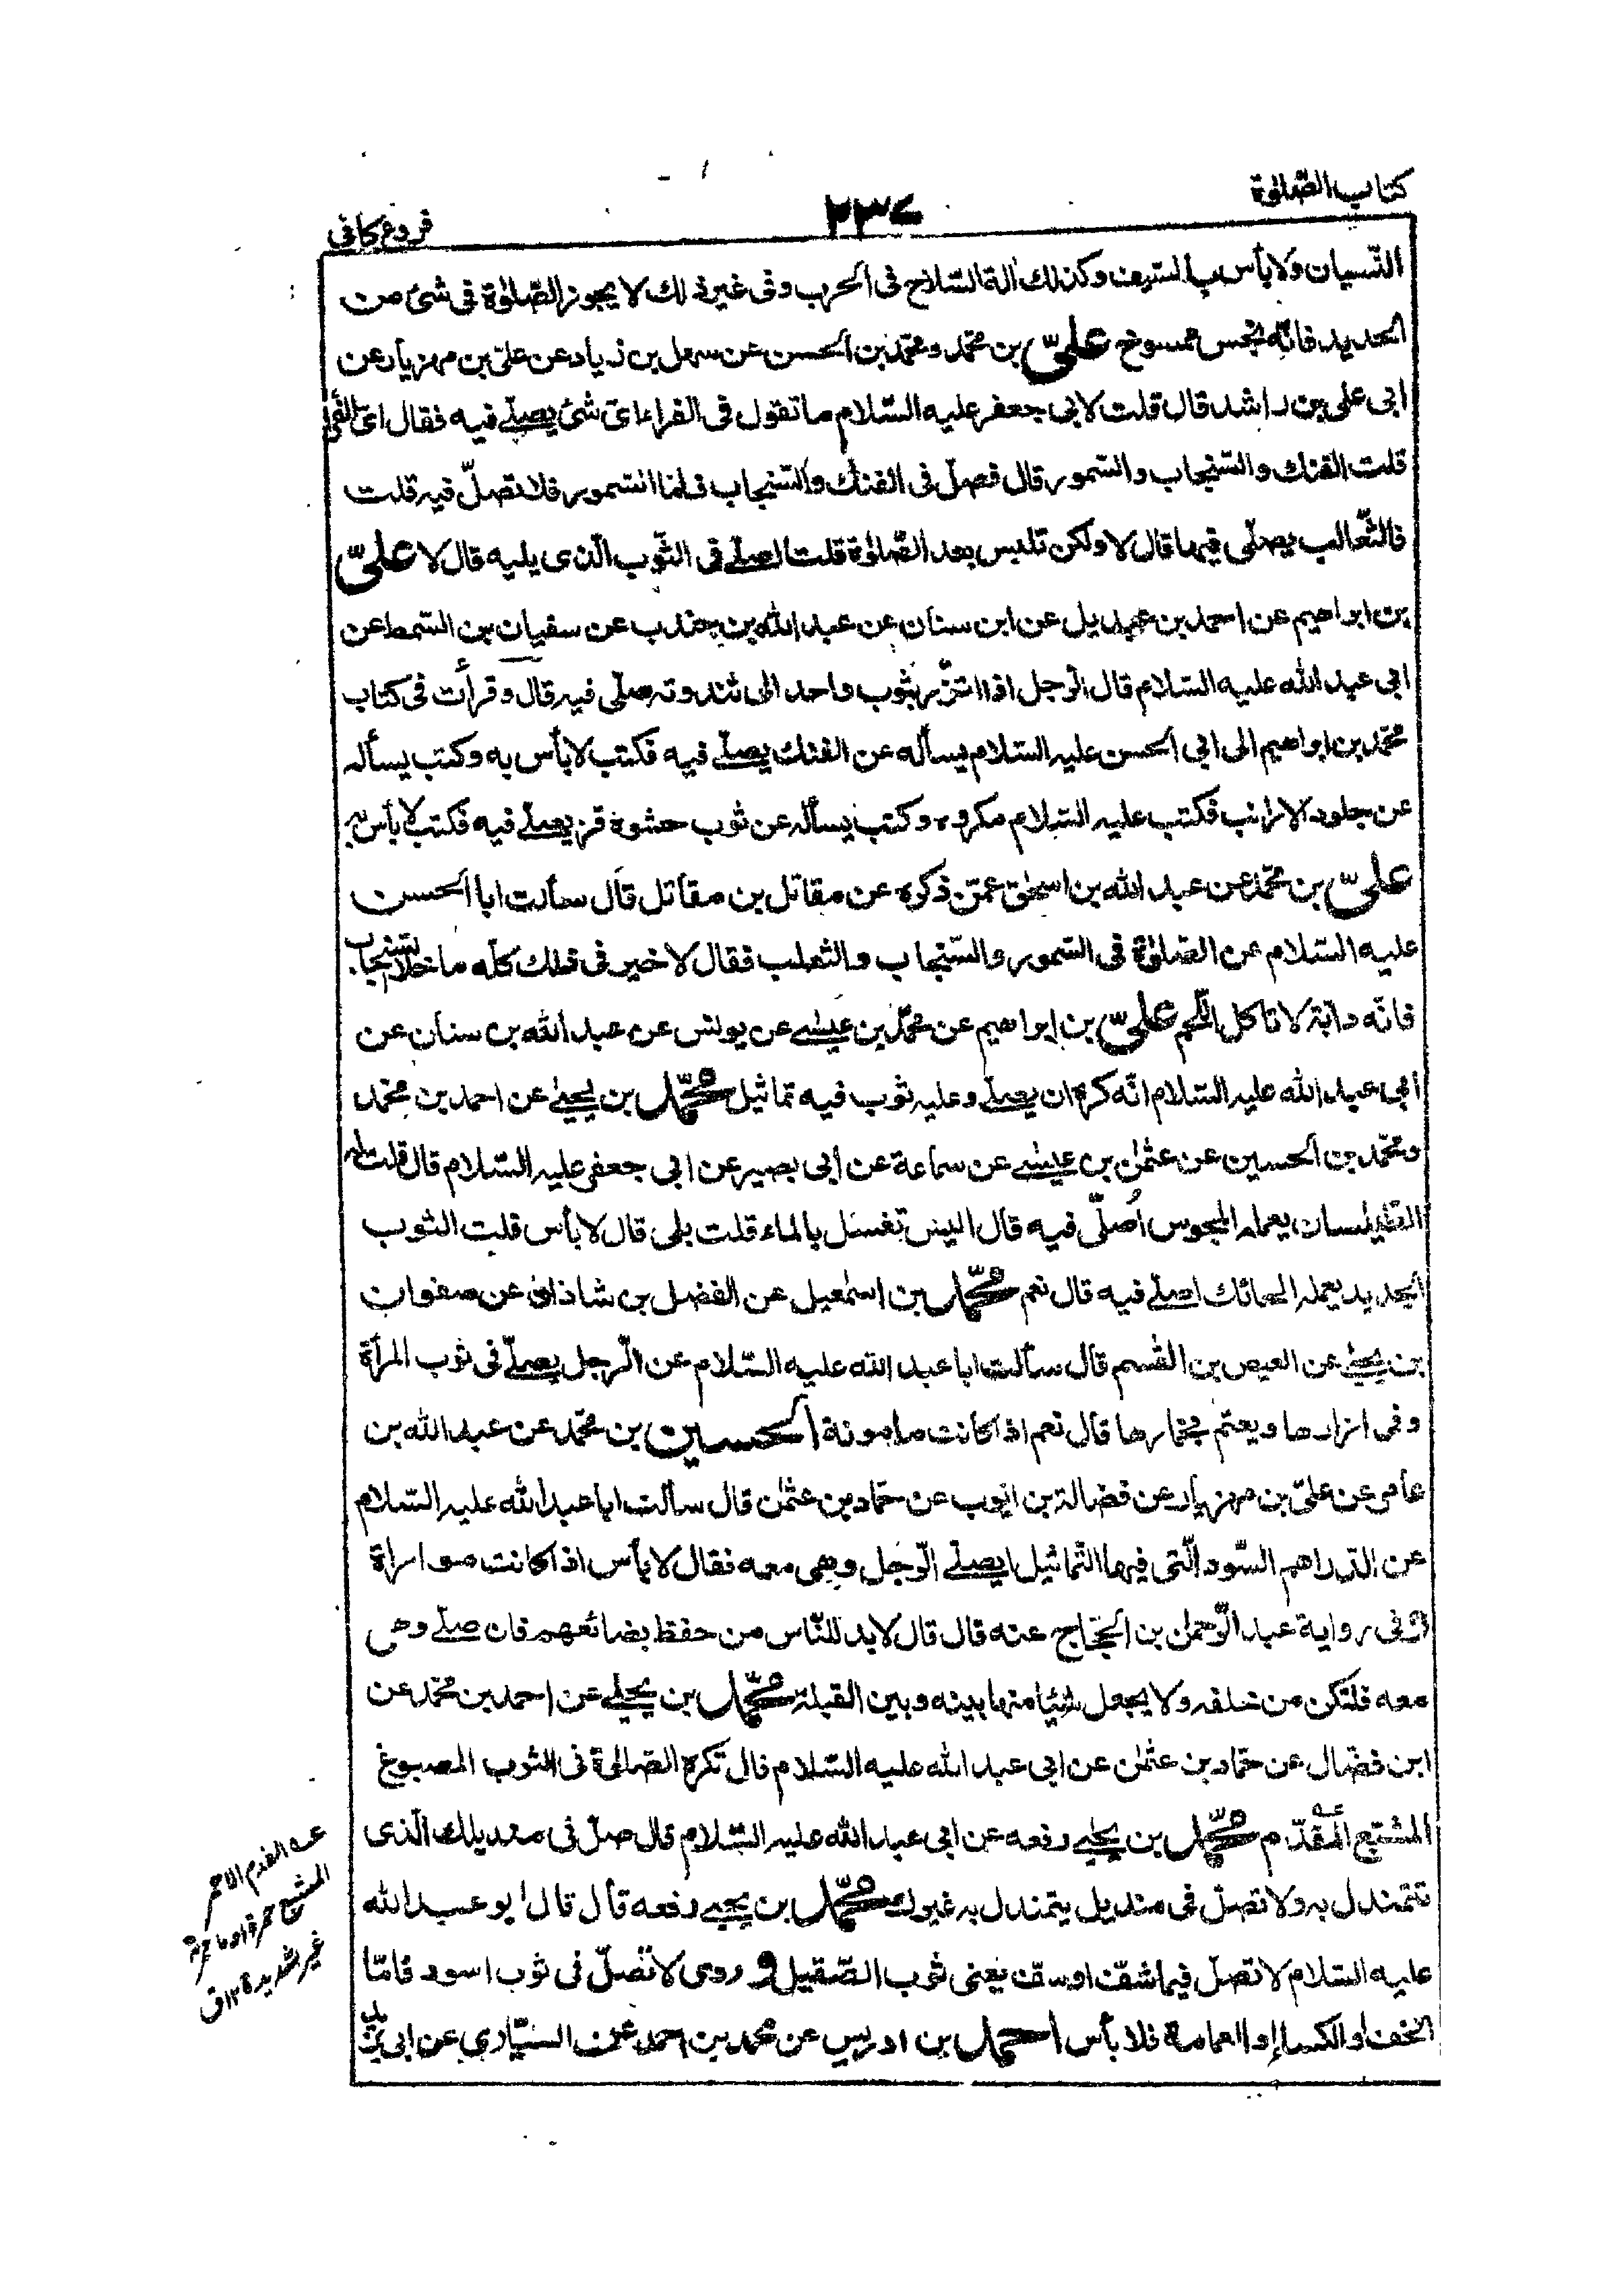 كتاب الصّلوٰة
٢٣٧
فروع كافى
النّسيان ولا بأس بالسّيف وكذلك آلة السّلاح فى الحرب وفى غير ذلك لا يجوز الصّلوٰة فى شئ من
الحديد فانّه نجس ممسوخ علىّ بن محمّد ومحمّد بن الحسن عن سهل بن زياد عن علىّ بن مهزيار عن
ابى على بن راشد قال قلت لابى جعفر عليه السّلام ما تقول فى الفراء اىّ شئ يصلّے فيه فقال اىّ الفرا
قلت الفنك والسّنجاب والسّمور قال فصلّ فى الفنك والسّنجاب فامّا السّمور فلا تصلّ فيه قلت
فالثّعالب يصلّى فيها قال لا ولكن تلبس بعد الصّلوٰة قلت اصلّے فى الثّوب الّذى يليه قال لا علىّ
بن ابراهيم عن احمد بن عبديل عن ابن سنان عن عبد الله بن جندب عن سفيان بن السّمط عن
ابى عبد الله عليه السّلام قال الرّجل اذا اتّزر بثوب واحد الى ثندوته صلّى فيه قال وقرأت فى كتاب
محمّد بن ابراهيم الى ابى الحسن عليه السّلام يسأله عن الفنك يصلّے فيه فكتب لا بأس به وكتب يسأله
عن جلود الارانب فكتب عليه السّلام مكروه وكتب يسأله عن ثوب حشوه قز يصلّے فيه فكتب لا بأس به
علىّ بن محمّد عن عبد الله بن اسحٰق عمّن ذكره عن مقاتل بن مقاتل قال سألت ابا الحسن
عليه السّلام عن الصّلوٰة فى السّمور والسّنجاب والثّعلب فقال لا خير فى ذلك كلّه ما خلا السّنجاب
فانّه دابّة لا تاكل اللّحم علىّ بن ابراهيم عن محمّد بن عيسٰے عن يونس عن عبد الله بن سنان عن
ابى عبد الله عليه السّلام انّه كره ان يصلّے وعليه ثوب فيه تماثيل محمّد بن يحيٰے عن احمد بن محمّد
ومحمّد بن الحسين عن عثمٰن بن عيسٰے عن سماعة عن ابى بصير عن ابى جعفر عليه السّلام قال قلت له
الطّيلسان يعمله المجوس اُصلّى فيه قال اليس تغسل بالماء قلت بلى قال لا بأس قلت الثوب
الجديد يعمله الحائك اصلّے فيه قال نعم محمّد بن اسمٰعيل عن الفضل بن شاذان عن صفوان
بن يحيٰے عن العيص بن القٰسم قال سألت ابا عبد الله عليه السّلام عن الرّجل يصلّے فى ثوب المرأة
وفى ازارها ويعتم بخمارها قال نعم اذا كانت مامونة الحسين بن محمّد عن عبد الله بن
عامر عن علىّ بن مهزيار عن فضالة بن ايّوب عن حمّاد بن عثمٰن قال سألت ابا عبد الله عليه السّلام
عن الدّراهم السّود الّتى فيها التّماثيل ايصلّے الرّجل وهى معه فقال لا بأس اذا كانت مواراة
وفى رواية عبد الرّحمٰن بن الحجّاج عنه قال قال لا بد للنّاس من حفظ بضائعهم فان صلّے وهى
معه فلتكن من خلفه ولا يجعل شيئا منها بينه وبين القبلة محمّد بن يحيٰے عن احمد بن محمّد عن
ابن فضّال عن حمّاد بن عثمٰن عن ابى عبد الله عليه السّلام قال تكره الصّلوة فى الثوب المصبوغ
المشبّع المفدّم محمّد بن يحيٰے رفعه عن ابى عبد الله عليه السّلام قال صلّ فى منديلك الّذى
تتمندل به ولا تصلّ فى منديل يتمندل به غيرك محمّد بن يحيٰے رفعه قال قال ابو عبد الله
عليه السّلام لا تصلّ فيما شفّ او سفّ يعنى ثوب الصّقيل و روى لا تصلّ فى ثوب اسود فامّا
الخف او الكساء او العمامة فلا بأس احمد بن ادريس عن محمد بن احمد عن السّيّارى عن ابى يزيد
عه الفدم الاحمر
المشبع حمرة او ما حمرته
غير شديدة ١٢ ق